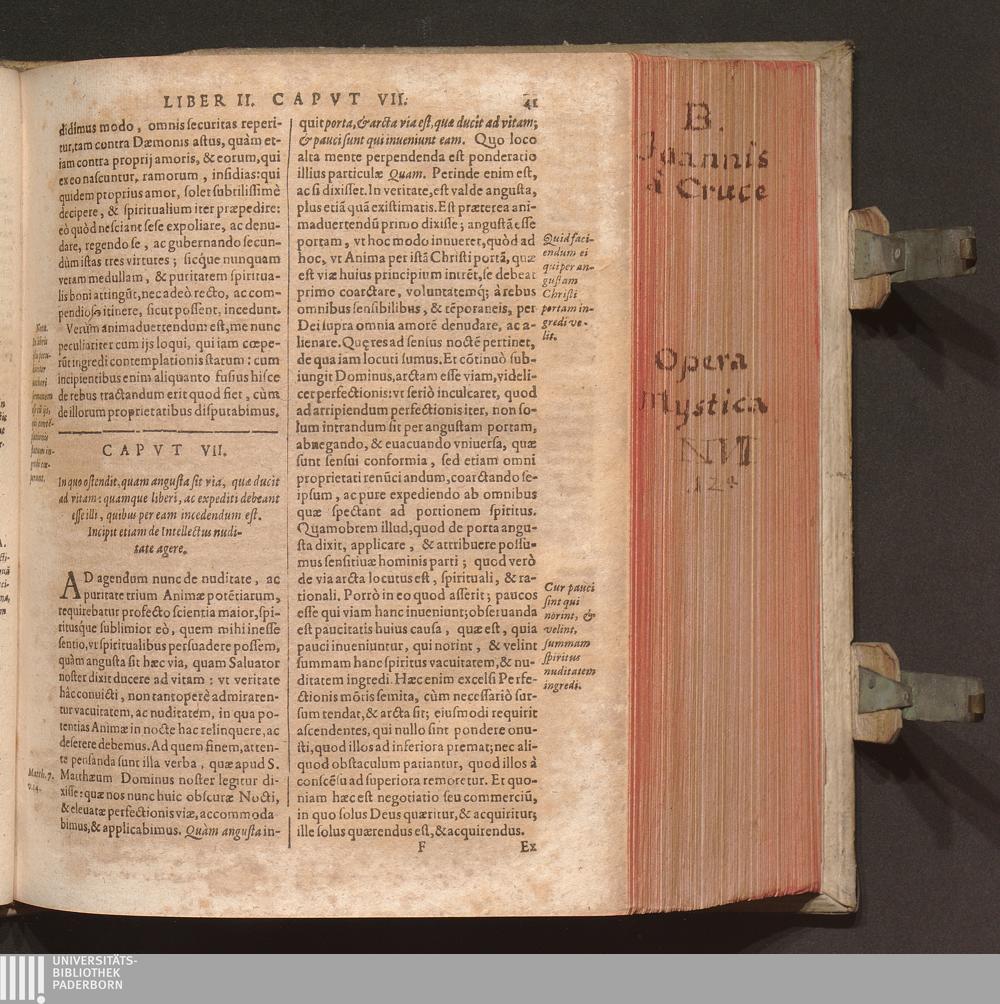 LIBER II. CAPVT VII.
41
didimus modo, omnis securitas reperi-
tur, tam contra Dæmonis astus, quàm et-
iam contra proprij amoris, & eorum, qui
ex eo nascuntur, ramorum, insidias: qui
quidem proprius amor, solet subtilissimè
decipere, & spiritualium iter præpedire:
eò quòd nesciant sese expoliare, ac denu-
dare, regendo se, ac gubernando secun-
dùm istas tres virtutes; sicq́ue nunquam
veram medullam, & puritatem spiritua-
lis boni attingūt, nec adeò recto, ac com-
pendioso itinere, sicut possent, incedunt.
Verùm animaduertendum est, me nunc
peculiariter cum ijs loqui, qui iam cœpe-
rūt ingredi contemplationis statum: cum
incipientibus enim aliquanto fusius hisce
de rebus tractandum erit quod fiet, cùm
de illorum proprietatibus disputabimus.
CAPVT VII.
In quo ostendit, quam angusta sit via, quæ ducit
ad vitam: quamque liberi, ac expediti debeant
esse illi, quibus per eam incedendum est.
Incipit etiam de Intellectus nudi-
tate agere.
AD agendum nunc de nuditate, ac
puritate trium Animæ potētiarum,
requirebatur profecto scientia maior, spi-
ritusq́ue sublimior eò, quem mihi inesse
sentio, vt spiritualibus persuadere possem,
quàm angusta sit hæc via, quam Saluator
noster dixit ducere ad vitam: vt veritate
hâc conuicti, non tantoperè admiraren-
tur vacuitatem, ac nuditatem, in qua po-
tentias Animæ in nocte hac relinquere, ac
deserere debemus. Ad quem finem, atten-
te pensanda sunt illa verba, quæ apud S.
Matthæum Dominus noster legitur di-
xisse: quæ nos nunc huic obscuræ Nocti,
& eleuatæ perfectionis viæ, accommoda
bimus, & applicabimus. Quàm angusta in-
Nota.
Matth. 7.
v. 14.
quit porta, & arcta via est, quæ ducit ad vitam;
& pauci sunt qui inueniunt eam. Quo loco
alta mente perpendenda est ponderatio
illius particulæ Quam. Perinde enim est,
ac si dixisset. In veritate, est valde angusta,
plus etiā quā existimatis. Est præterea ani-
maduertendū primo dixisse; angustā esse
portam, vt hoc modo innueret, quòd ad
hoc, vt Anima per istā Christi portā, quæ
est viæ huius principium intrēt, se debeat
primo coarctare, voluntatemq́; à rebus
omnibus sensibilibus, & tēporaneis, per
Dei supra omnia amorē denudare, ac a-
lienare. Quę res ad sensus noctē pertinet,
de qua iam locuti sumus. Et cōtinuò sub-
iungit Dominus, arctam esse viam, videli-
cet perfectionis: vt seriò inculcaret, quod
ad arripiendum perfectionis iter, non so-
lum intrandum sit per angustam portam,
abnegando, & euacuando vniuersa, quæ
sunt sensui conformia, sed etiam omni
proprietati renūciandum, coarctando se-
ipsum, ac pure expediendo ab omnibus
quæ spectant ad portionem spiritus.
Quamobrem illud, quod de porta angu-
sta dixit, applicare, & attribuere possu-
mus sensitiuæ hominis parti; quod verò
de via arcta locutus est, spirituali, & ra-
tionali. Porrò in eo quod asserit; paucos
esse qui viam hanc inueniunt; obseruanda
est paucitatis huius causa, quæ est, quia
pauci inueniuntur, qui norint, & velint
summam hanc spiritus vacuitatem, & nu-
ditatem ingredi. Hæc enim excelsi Perfe-
ctionis mōtis semita, cùm necessariò sur-
sum tendat, & arcta sit; eiusmodi requirit
ascendentes, qui nullo sint pondere onu-
sti, quod illos ad inferiora premat; nec ali-
quod obstaculum patiantur, quod illos à
conscēsu ad superiora remoretur. Et quo-
niam hæc est negotiatio seu commerciū,
in quo solus Deus quæritur, & acquiritur;
ille solus quærendus est, & acquirendus.
F
Ex
Quid faci-
endum ei
qui per an-
gustam
Christi
portam in-
gredi ve-
lit.
Cur pauci
sint qui
norint, &
velint,
summam
spiritus
nuditatem
ingredi.
B.
Joannis
à Cruce
Opera
Mystica
UNIVERSITÄTS-
BIBLIOTHEK
PADERBORN